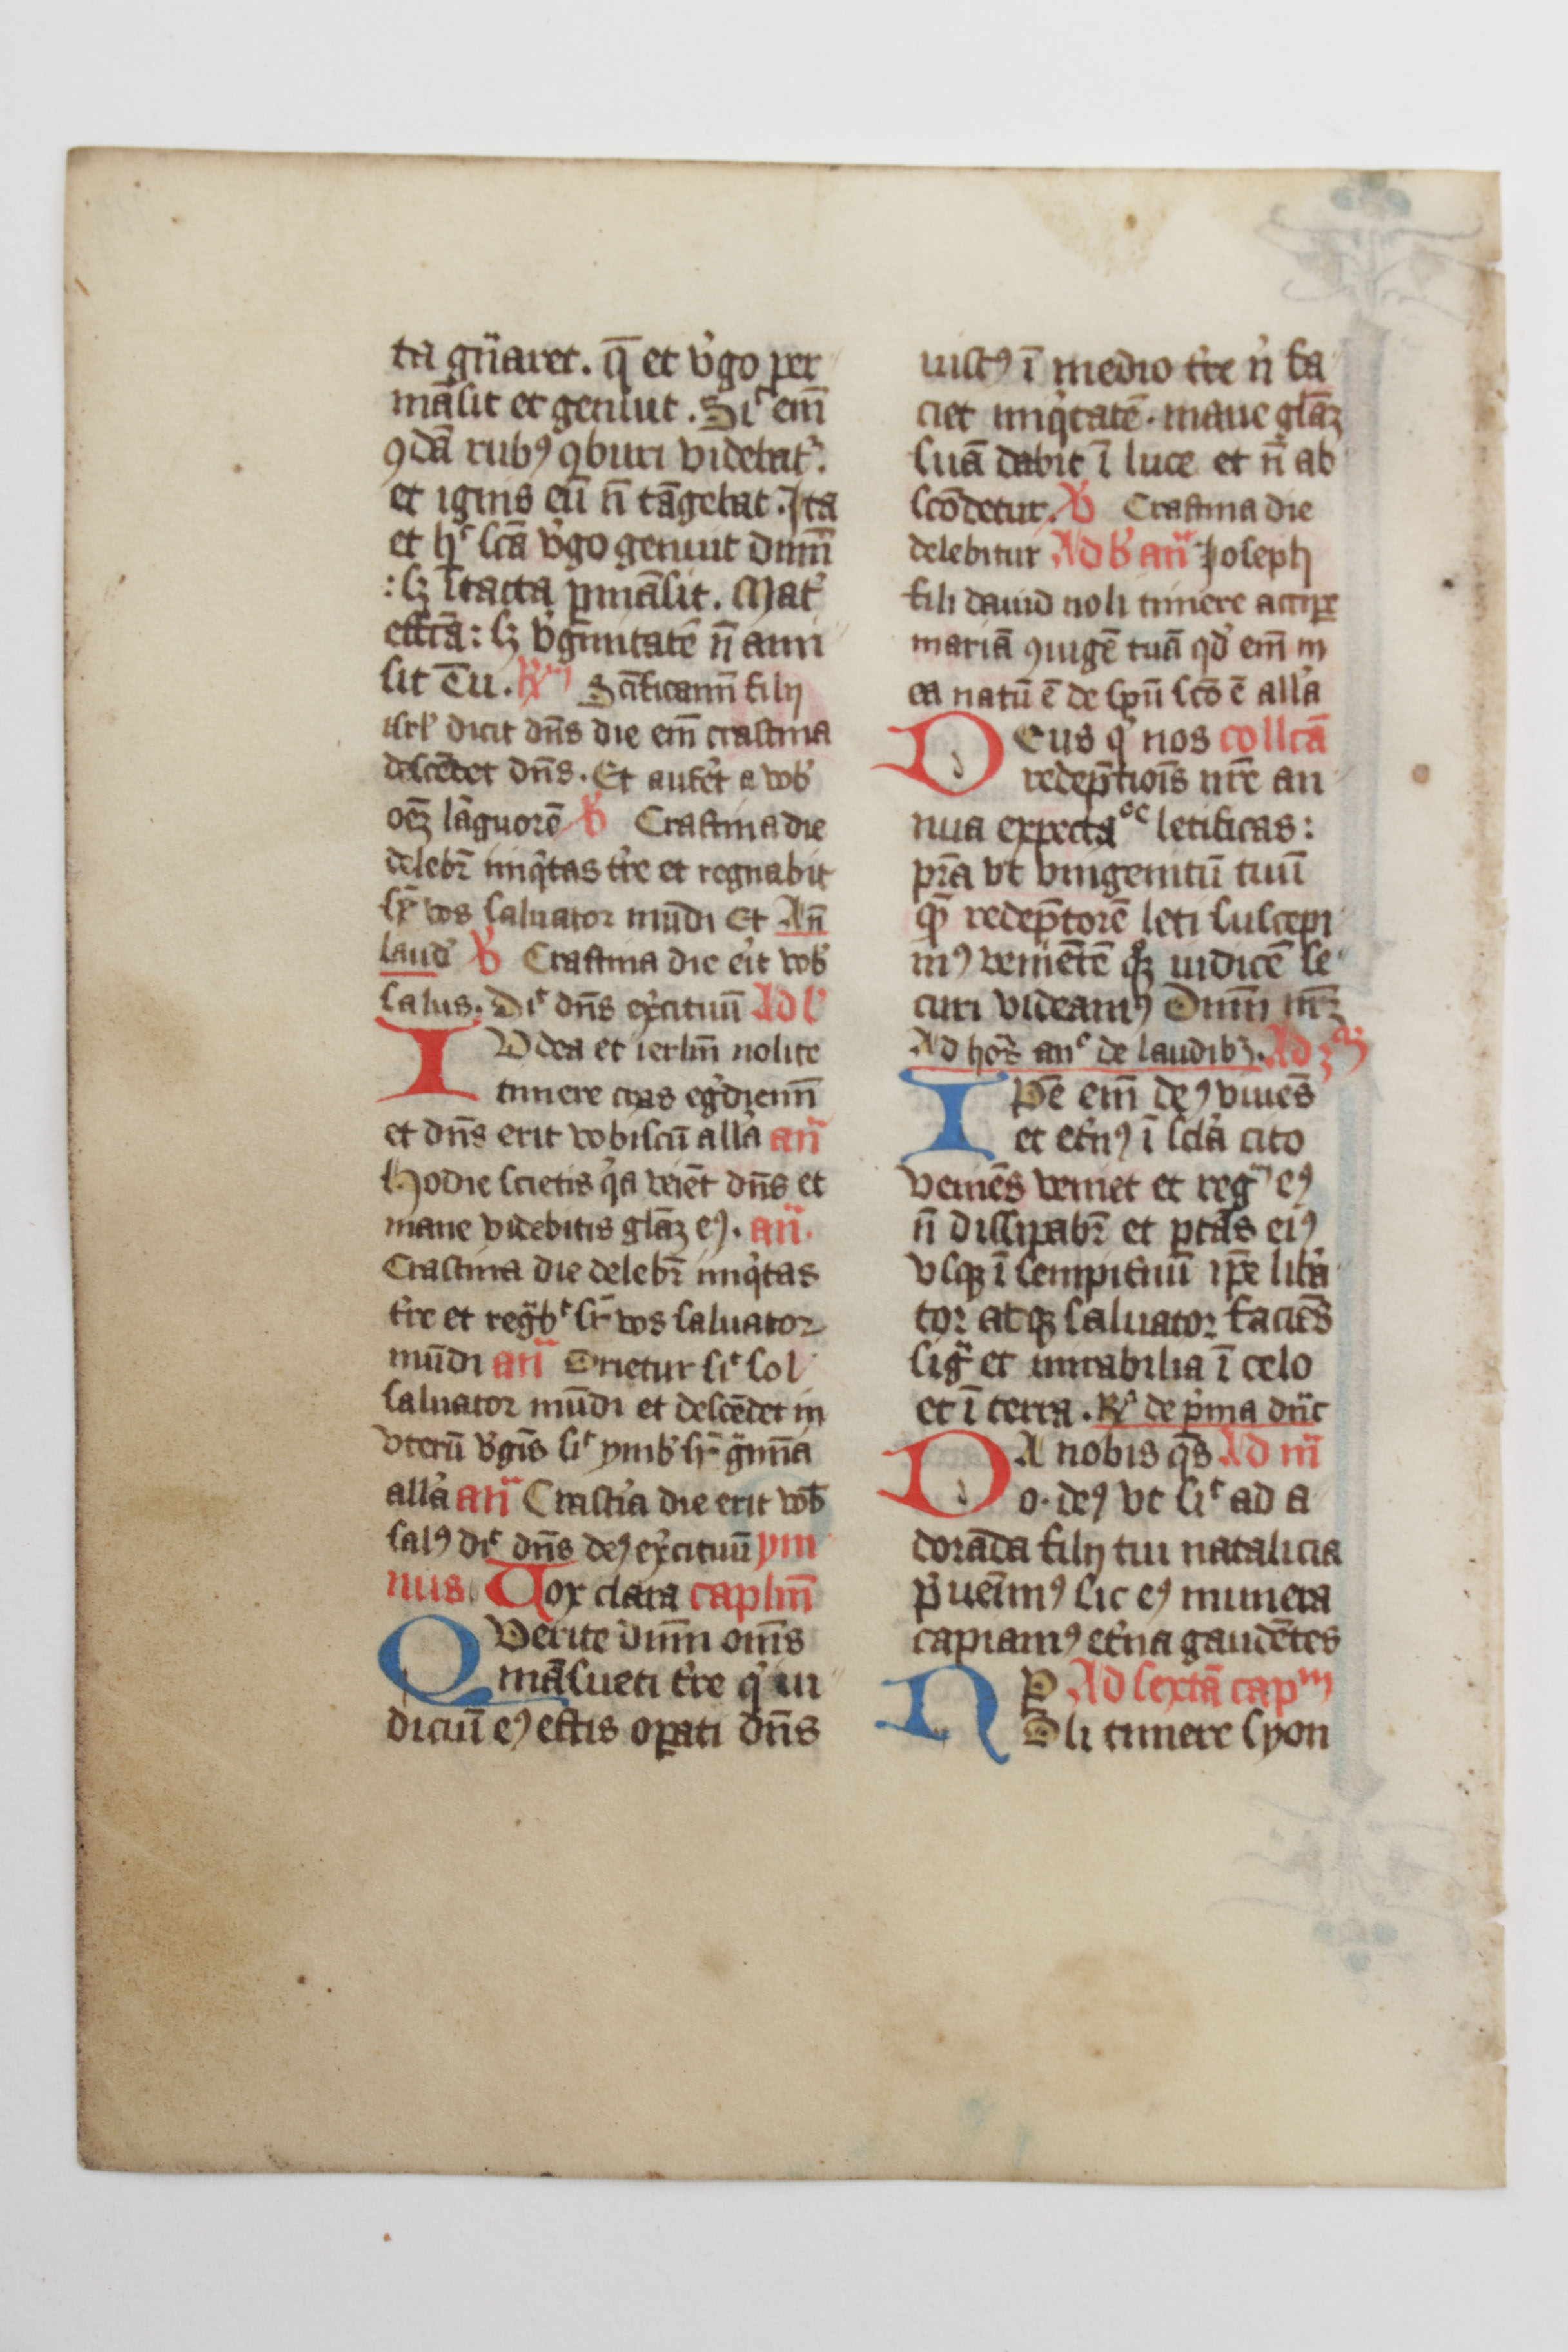 ta gn̄aret. q̄ et v̓go per
māsit et genuit. Sic em̄
ꝯdā rubꝯ ꝯburi videbat᷑.
et ignis eū n̄ tāgebat. Ita
et hͨ scā v̓go genuit dn̄m
: sꝫ ītacta ꝑmāsit. Mat᷑
eff̄cā: sꝫ v̓gīnitatē n̄ ami
sit Tu. R̸m Sc̄ificamī filij
isrl̓ dicit dn̄s die em̄ crastina
descēdet dn̄s. Et aufet᷑ a vob̓
oēꝫ lāguorē V̸ Crastina die
delebr̄ iniq̓tas t̓re et regnabit
sr̄ vos saluator mūdi Et An̄
laud̓ V̸ Crastina die eit᷑ vob̓
salus. Dic dn̄s ex̓cituū Ad l̓
IVdea et ierlm̄ nolite
timere cras egr̓diem̄
et dn̄s erit vobiscū all̓a an̄
Hodie scietis q̓a veiēt dn̄s et
mane videbitis glāꝫ eꝯ. an̄.
Crastina die delebr̄ iniq̓tas
t̓re et regb̓ͨ sr̄ vos saluator
mūdi an̄ Orietur sic sol
saluator mūdi et descēdet in
vterū v̓gīs sic ymb̓ sr̄ gͣmīa
all̓a an̄ Crastīa die erit vob̓
salꝯ dic dn̄s deꝯ ex̓cituū ym
nus. Vox clara caplm̄
QVerite dn̄m om̄s
māsueti t̓re q̓ iu
diciū eꝯ estis oꝑati dn̄s
uistꝯ ī medio t̓re n̄ fa
ciet iniq̓tatē. mane glāꝫ
suā dabit ī luce et n̄ ab
scōdetur. V̸ Crastina die
delebitur Ad b̓ an̄ Ioseph
fili dauid noli timere acciꝑe
mariā ꝯiugē tuā qd̓ em̄ in
ea natū ē de spū scō ē all̓a
DEus q̓ nos collcā
redēptiōis nr̄e an
nua expectaͦͨ letificas:
pr̄a vt vnigenitū tuū
qͣ redēptorē leti suscepi
mꝯ veniētē qꝫ iudicē se
curi videamꝯ Dn̄m nr̄ꝫ
Ad hor̓s anͨ de laudibꝫ. Ad
IPē em̄ deꝯ viuēs
et et̓nꝯ ī scl̓a cito
veniēs veniet et regm eꝯ
n̄ dissipabr̄ et ptās eiꝯ
vsqꝫ ī sempit̓nū ip̄e lib̓a
tor atqꝫ saluator faciēs
sigͣ et mirabilia ī celo
et ī terra. R̸ de p̓ma dn̄c
DA nobis qs̄ Ad iii
o. deꝯ vt sic ad a
dorāda filij tui natalicia
p̓ueīmꝯ sic eꝯ munera
capiamꝯ et̓na gaudētes
P Ad sextā capm
NOli timere syon